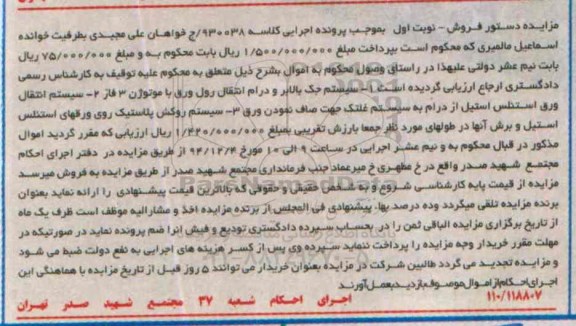 مزایده دستور فروش - نوبت اول بموجب پرونده اجرایی کلاسه ۹۳۰۰۳۸/ج خواهان علی مجیدی بطرفیت خوانده
اسماعیل مالمیری که محکوم است بپرداخت مبلغ ۱/۵۰۰/۰۰۰/۰۰۰ ریال بابت محکوم به و مبلغ ۷۵/۰۰۰/۰۰۰ ریال
بابت نیم عشر دولتی علیهذا در راستای وصول محکوم به اموال بشرح ذیل متعلق به محکوم علیه توقیف به کارشناس رسمی
دادگستری ارجاع ارزیابی گردیده است ۱- سیستم جک بالابر و درام انتقال رول ورق با موتوژن ۳ فاز ۲- سیستم انتقال
ورق استنلس استیل از درام به سیستم غلتک جهت صاف نمودن ورق ۳- سیستم روکش پلاستیک روی ورقهای استنلس
استیل و برش آنها در طولهای مورد نظر جمعا بارزش تقریبی بمبلغ ۱/۴۲۰/۰۰۰/۰۰۰ ریال ارزیابی که مقرر گردید اموال
مذکور در قبال محکوم به و نیم عشر اجرایی در ساعت ۹ الی ۱۰ مورخ ۹۴/۱۲/۴ از طریق مزایده در دفتر اجرای احکام
مجتمع شهید صدر واقع در خ مطهری خ میرعماد جنب فرمانداری مجتمع شهید صدر از طریق مزایده به فروش میرسد
مزایده از قیمت پایه کارشناسی شروع و به شخص حقیقی و حقوقی که بالاترین قیمت پیشنهادی را ارائه نماید بعنوان
برنده مزایده تلقی میگردد وده درصد بهاء پیشنهادی فی المجلس از برنده مزایده اخذ و مشارالیه موظف است ظرف یک ماه
از تاریخ برگزاری مزایده الباقی ثمن را در بحساب سپرده دادگستری تودیع و فیش انرا ضم پرونده نماید در صورتیکه در
مهلت مقرر خریدار وجه مزایده را پرداخت ننماید سپرده وی پس از کسر هزینه های اجرایی به نفع دولت ضبط می شود
و مزایده تجدید می گردد طالبین شرکت در مزایده بعنوان خریدار می توانند ۵ روز قبل از تاریخ مزایده با هماهنگی این
اجرای احکام از اموال موصوف بازدید بعمل آورند
۱۱۰/۱۱۸۸۰۷ اجرای احکام شعبه ۳۷ مجتمع شهید صدر تهران